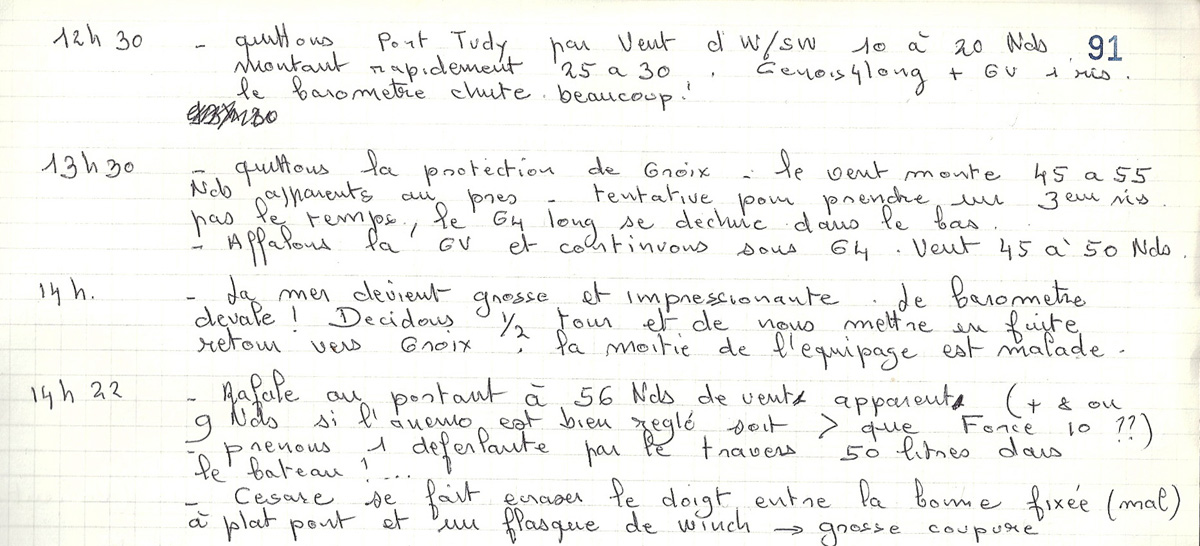 12h 30 - quittons Port Tudy par Vent d W/SW 10 à 20 Nds. 91
montant rapidement 25 a 30. Genois 4 long + GV 1 ris.
le barometre chute beaucoup!
13h30 - quittons la protection de Groix - le vent monte 45 a 55
Nds apparents au pres - tentative pour prendre un 3em ris.
pas le temps, le G4 long se dechire dans le bas.
- Affalons la GV et continuons sous G4. Vent 45 à 50 Nds.
14h. - La mer devient grosse et impressionante. Le barometre
devale! Decidons 1/2 tour et de nous mettre en fuite
retour vers Groix. la moitie de l'equipage est malade.
14h 22 - Rafale au portant à 56 Nds de vent apparent (+ 8 ou
9 Nds si l'anemo est bien reglé soit > que Force 10 ??)
- prenons 1 deferlante par le travers 50 litres dans
le bateau!...
- Cesare se fait ecraser le doigt entre la bome fixée (mal)
à plat pont et un flasque de winch → grosse coupure